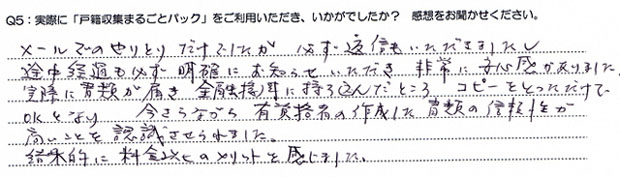 Q5：実際に「戸籍収集まるごとパック」をご利用いただき、いかがでしたか？ 感想をお聞かせください。
メールでのやりとりだけでしたが 必ず返信もいただきましたし
途中経過も必ず明確にお知らせいただき 非常に安心感がありました。
実際に書類が届き 金融機関に持ち込んだところ、コピーをとっただけで
OKとなり 今さらながら 有資格者の作成した書類の信頼性が
高いことを認識させられました。
結果的に料金以上のメリットを感じました。